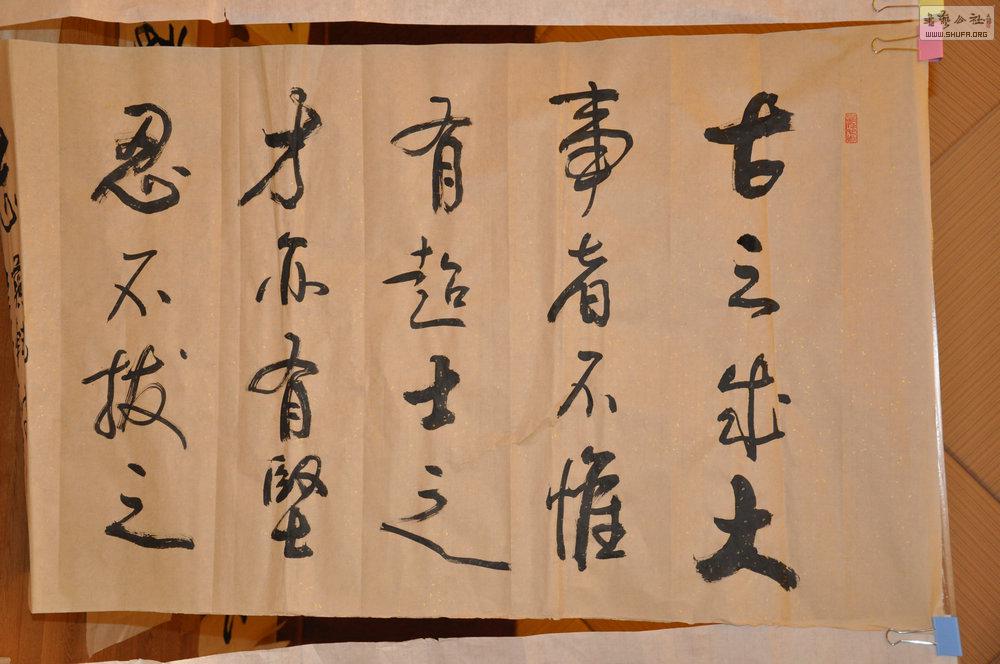 古之成大
事者不惟
有超士之
才亦有堅
忍不拔之
書藝公社
WWW.SHUFA.ORG